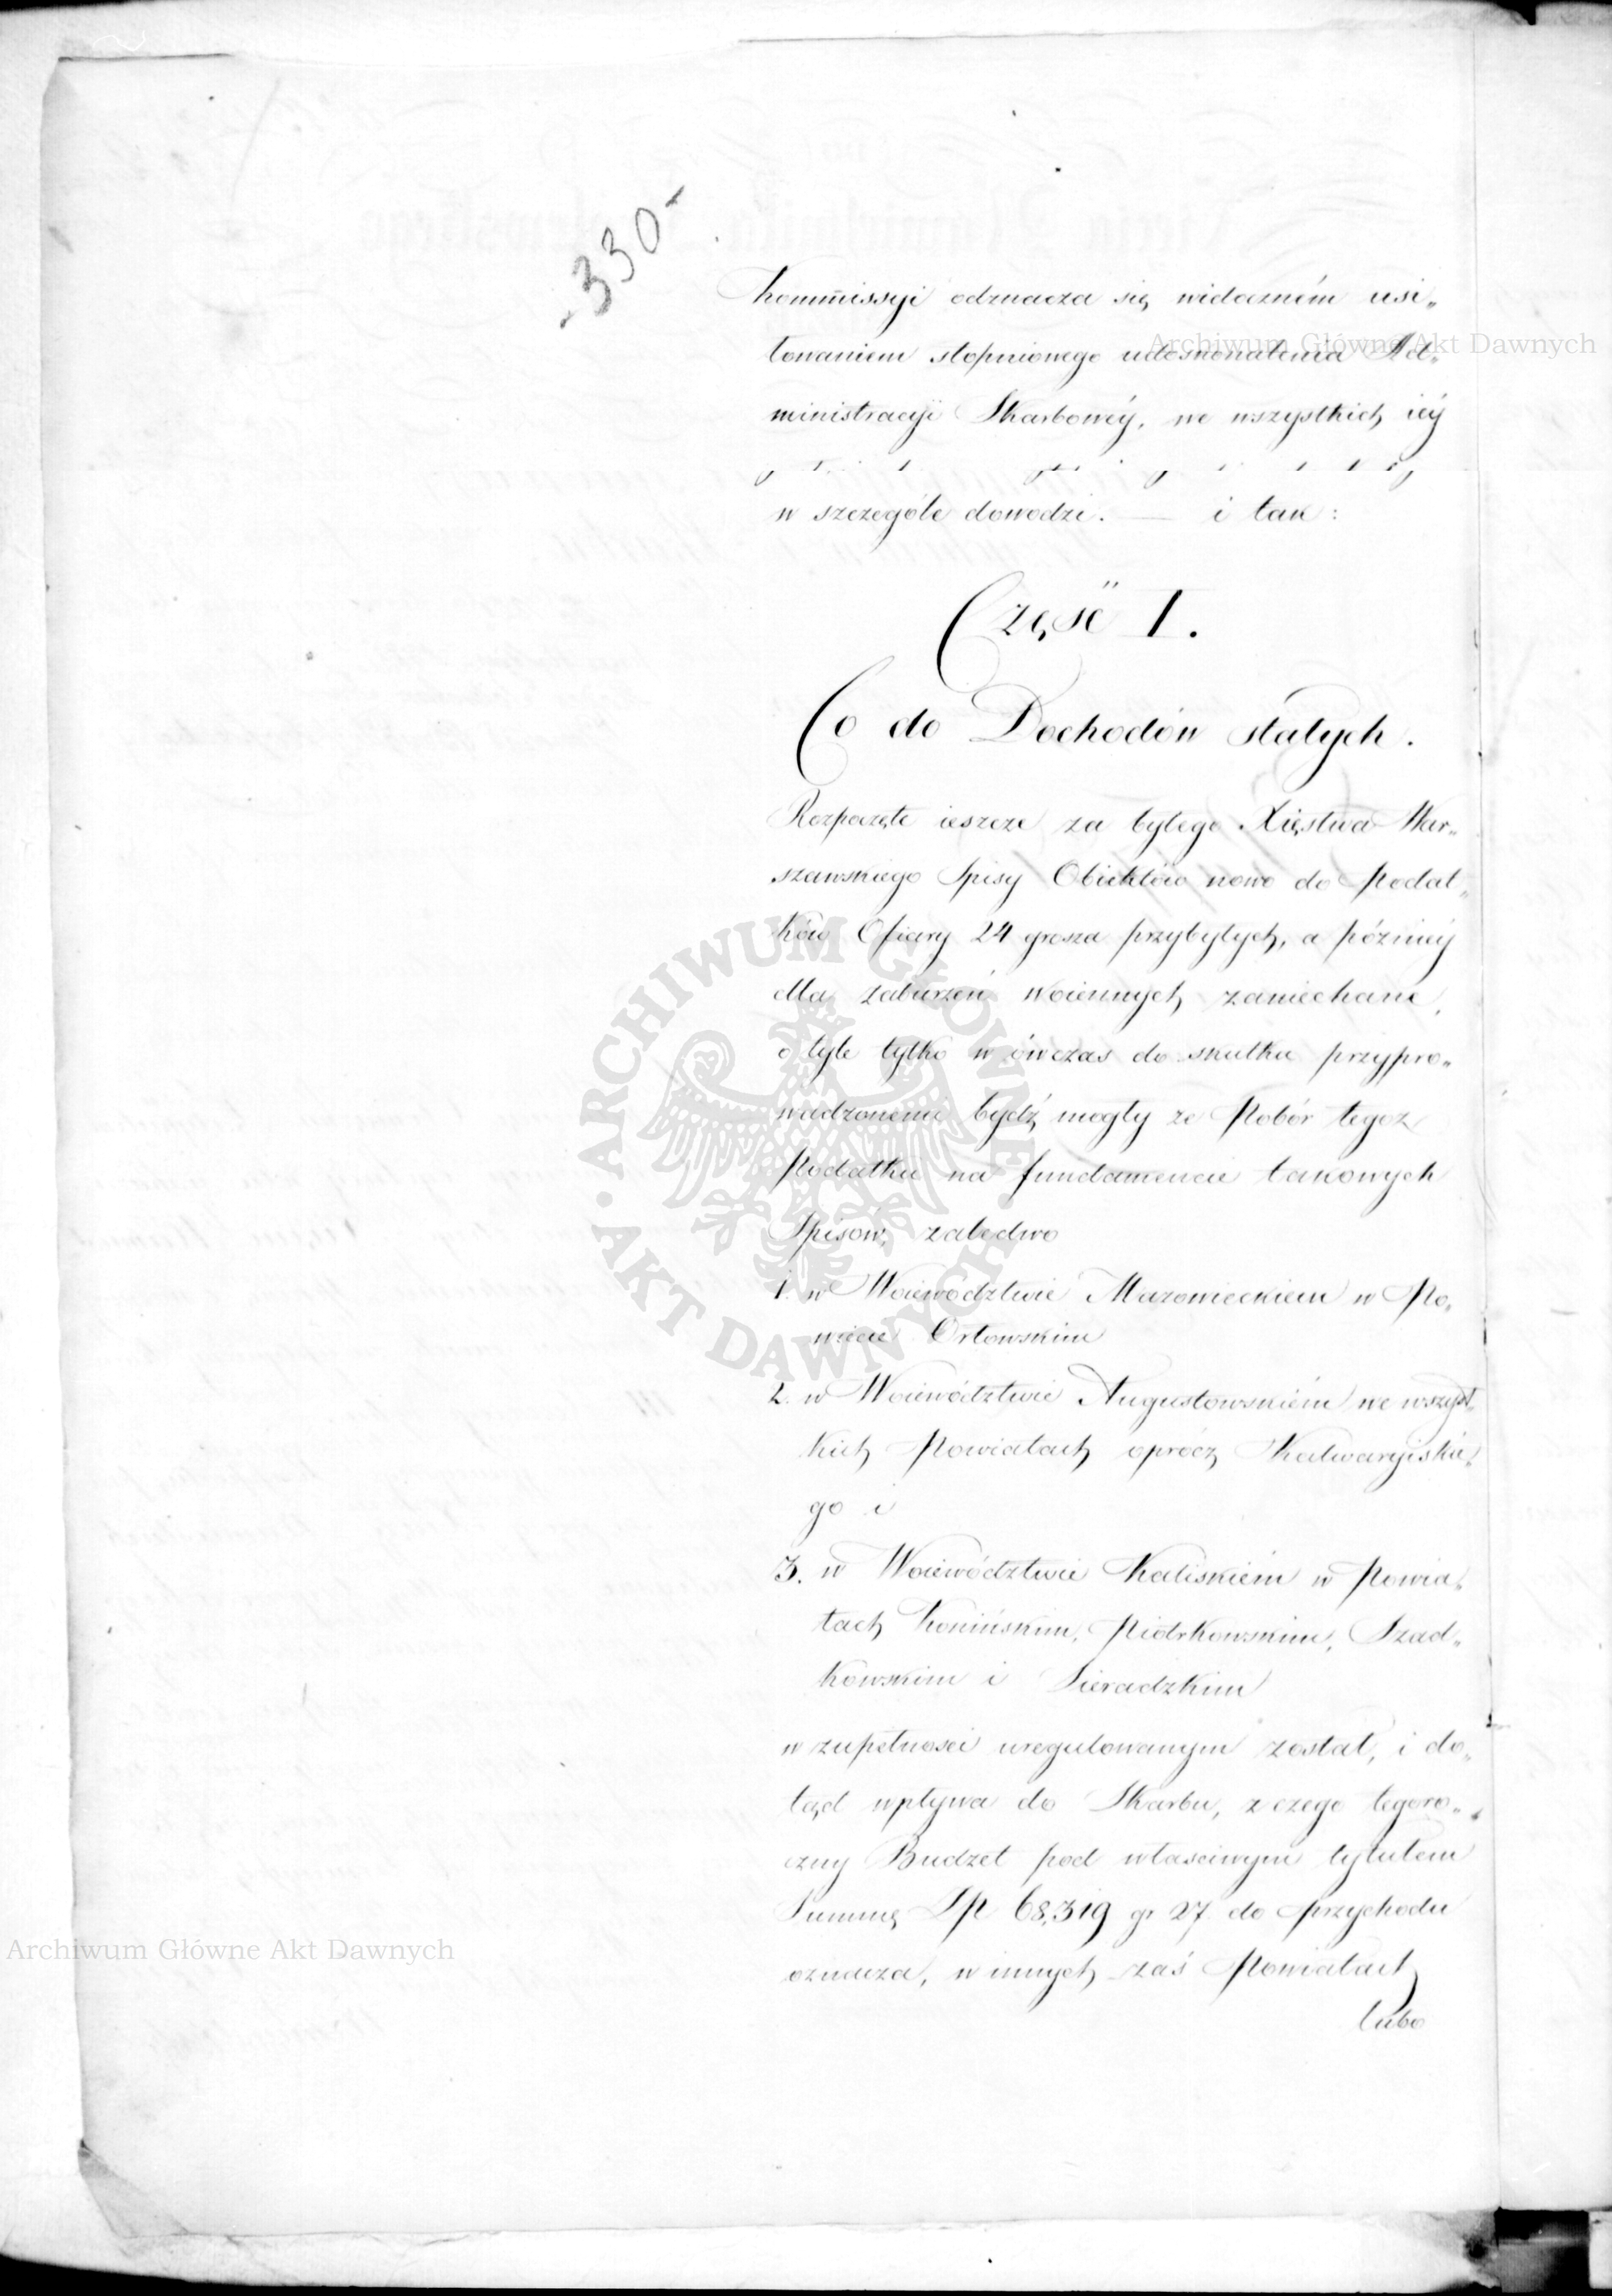 -330-
Kommissyi odznacza się widoczném usi„
łowaniem stopniowego udoskonalenia Ad„
ministracyi Skarbowéy, we wszystkich iéy
w szczególe dowodzi. — i tak:
Część I.
Co do Dochodów stałych.
Rozpoczęte ieszcze za byłego Xięstwa War„
szawskiego Spisy Obiektów nowo do Podat„
ków Ofiary 24 grosza przybyłych, a późniéy
dla zaburzeń woiennych zaniechane,
o tyle tylko w ówczas do skutku przypro„
wadzonemi bydź mogły że Pobór tegoż
Podatku na fundamencie takowych
Spisów, zaledwo
1. w Woiewództwie Mazowieckiem w Po„
wiecie Orłowskim
2. w Woiewództwie Augustowskiém we wszyst„
kich Powiatach oprócz Kalwaryiskie„
go i
3. w Woiewództwie Kaliskiém w Powia„
tach Konińskim, Piotrkowskim, Szad„
kowskim i Sieradzkim
w zupełności uregulowanym został, i do„
tąd wpływa do Skarbu, z czego tegoro„
czny Budżet pod właściwym tytułem
Summę Zł 68,319 gr 27 do Przychodu
oznacza, w innych zaś Powiatach
lubo
Archiwum Główne Akt Dawnych
ARCHIWUM GŁÓWNE · AKT DAWNYCH ·
Archiwum Główne Akt Dawnych